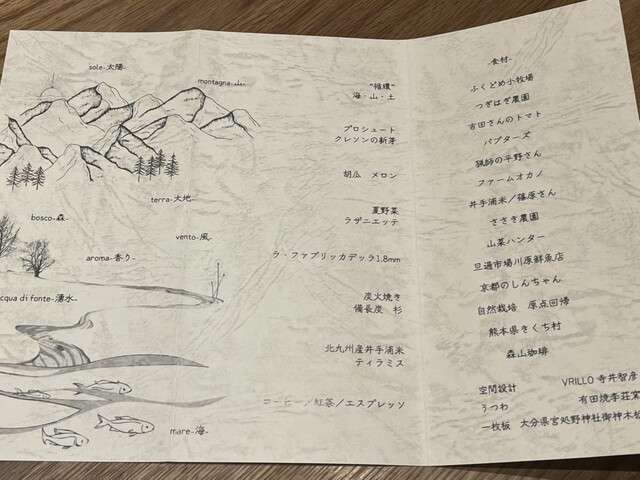 sole-太陽-
montagna-山-
terra-大地-
bosco-森-
vento-風-
aroma-香り-
cqua di fonte-湧水-
mare-海-
"循環"
海・山・土
プロシュート
クレソンの新芽
胡瓜 メロン
夏野菜
ラザニエッテ
ラ・ファブリッカデッラ1.8mm
炭火焼き
備長炭 杉
北九州産井手浦米
ティラミス
コーヒー/紅茶/エスプレッソ
-食材-
ふくどめ小牧場
つぎはぎ農園
吉田さんのトマト
パプターズ
猟師の平野さん
ファームオカノ
井手浦米/篠原さん
ささき農園
山菜ハンター
旦過市場川原鮮魚店
京都のしんちゃん
自然栽培 原点回帰
熊本県きくち村
森山珈琲
空間設計 VRILLO 寺井智彦
うつわ 有田焼李荘窯
一枚板 大分県宮処野神社御神木松